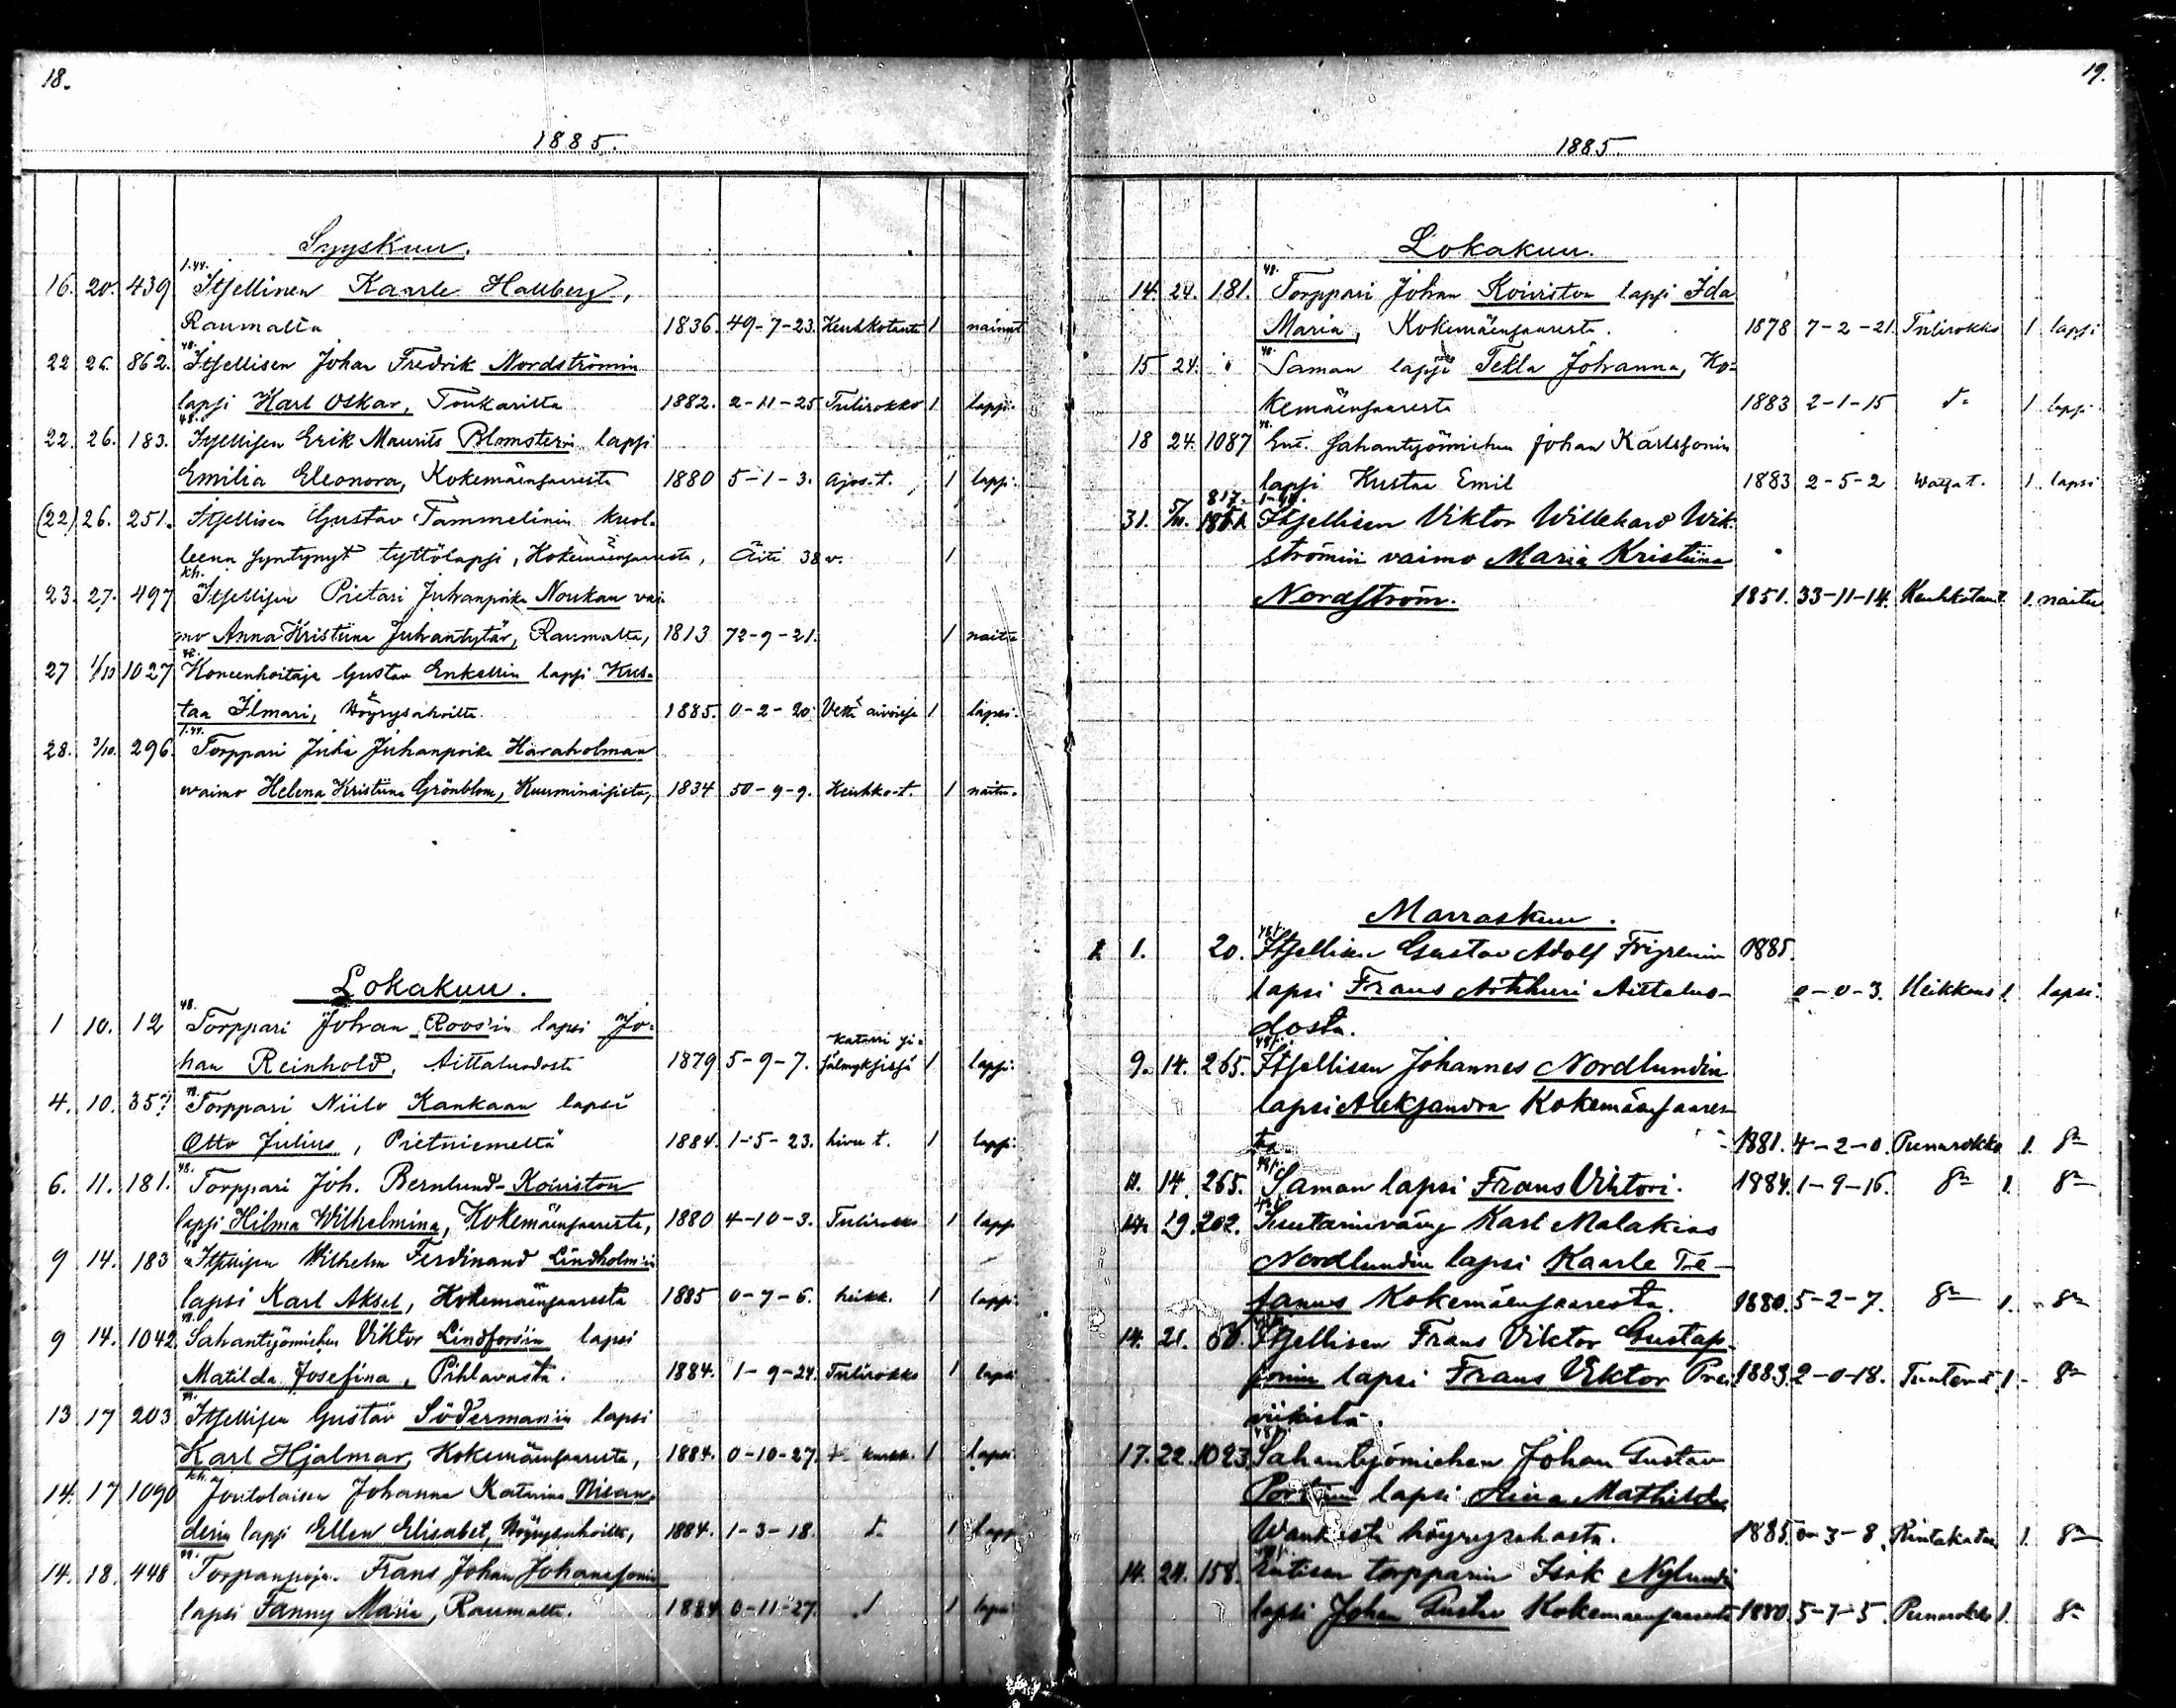 18.
1885.
Syyskuu.
1.44.
16. 20. 439 Itsellinen Kaarle Hallberg,
Raumalta 1836. 49-7-23. Keuhkotauti 1 nainut
48.
22 26. 862. Itsellisen Johan Fredrik Nordströmin
lapsi Karl Oskar, Toukarilta 1882. 2-11-25 Tulirokko 1 lapsi.
48.
22. 26. 183. Itsellisen Erik Maurits Blomsterin lapsi
Emilia Eleonora, Kokemäensaaresta 1880 5-1-3. ajos-t. 1 lapsi.
(22) 26. 251. Itsellisen Gustav Tammelinin kuol-
leena syntynyt tyttölapsi, Kokemäensaaresta, Äiti 38 v. 1
kh.
23. 27. 497 Itsellisen Pietari Juhanpoika Noukan vai-
mo Anna Kristiina Juhantytär, Raumalta, 1813 72-9-21. 1 naitu
48.
27 1/10 1027 Koneenhoitaja Gustav Enkellin lapsi Kus-
taa Ilmari, Höyrysahoilta. 1885. 0-2-20 Vettä aivoissa 1 lapsi.
1.44.
28. 3/10. 296. Torppari Juha Juhanpoika Haraholman
vaimo Helena Kristiina Grönblom, Kuuminaisista, 1834 50-9-9. Keuhko-t. 1 naitu.
Lokakuu.
48.
1 10. 12 Torppari Johan Roos'in lapsi Jo-
han Reinhold, Aittaluodosta 1879 5-9-7. katarri si- sälmyksissä 1 lapsi.
4. 10. 35 Torppari Niilo Kankaan lapsi
Otto Julius, Pietniemeltä 1884. 1-5-23. hivu t. 1 lapsi.
48.
6. 11. 181. Torppari Joh. Bernlund-Koiviston
lapsi Hilma Wilhelmina, Kokemäensaaresta, 1880 4-10-3. Tulirokko 1 lapsi
9 14. 183 Itsellisen Wilhelm Ferdinand Lindholm'in
lapsi Karl Aksel, Kokemäensaaresta 1885 0-7-6. heikk. 1 lapsi.
9 14. 1042. Sahantyömiehen Viktor Lindfors'in lapsi
Matilda Josefina, Pihlavasta. 1884. 1-9-24. Tulirokko 1 lapsi
13 17 203 Itsellisen Gustav Söderman'in lapsi
Karl Hjalmar, Kokemäensaaresta, 1884. 0-10-27. 1 lapsi.
kh.
14. 17 1090 Johanna Katarina Nisan-
derin lapsi Ellen Elisabet, Höyrysahoilta, 1884. 1-3-18. d:o 1 lapsi
14. 18. 448 Torpanpoja. Frans Johan Johanssonin
lapsi Fanny Maria, Raumalta. 1884 0-11-27. 1 lapsi
19.
1885.
Lokakuu.
48.
14. 24. 181. Torppari Johan Koiviston lapsi Ida
Maria, Kokemäensaaresta. 1878 7-2-21. Tulirokko 1 lapsi
48.
15 24. Saman lapsi Tekla Johanna, Ko-
kemäensaaresta 1883 2-1-15 d:o 1 lapsi
48.
18 24. 1087 Ent. Sahantyömiehen Johan Karlssonin
lapsi Kustaa Emil 1883 2-5-2 Watsa t. 1. lapsi
817.
31. 5/11. Itsellisen Viktor Willehard Wik-
strömin vaimo Maria Kristiina
Nordström. 1851. 33-11-14. Keuhkotauti. 1. naitu
Marraskuu.
48.
1. 20. Itsellisen Gustav Adolf Frigrenin 1885.
lapsi Frans Arthuri Aittaluo- 0-0-3. Heikkous 1. lapsi.
dosta.
48.
9. 14. 265. Itsellisen Johannes Nordlundin
lapsi Aleksandra Kokemäensaares-
ta 1881. 4-2-0. Punarokko 1. d:o
48.
11. 14. 265. Saman lapsi Frans Viktori. 1884. 1-9-16. d:o 1. d:o
19. 202. Karl Malakias
Nordlundin lapsi Kaarle Te-
fanus Kokemäensaaresta. 1880. 5-2-7. d:o 1. d:o
14. 21. 50. Itsellisen Frans Viktor Gustafs-
sonin lapsi Frans Viktor Prei- 1883. 2-0-18. 1. d:o
viikistä.
48.
17. 22. 1023. Sahantyömiehen Johan Gustav
lapsi Mathilda
höyrysahasta. 1885. 0-3-8. 1. d:o
14. 24. 158. Entisen torpparin Isak Nylundin
lapsi Johan Gustav Kokemäensaaresta 1880. 5-7-5. Punarokko 1. d:o